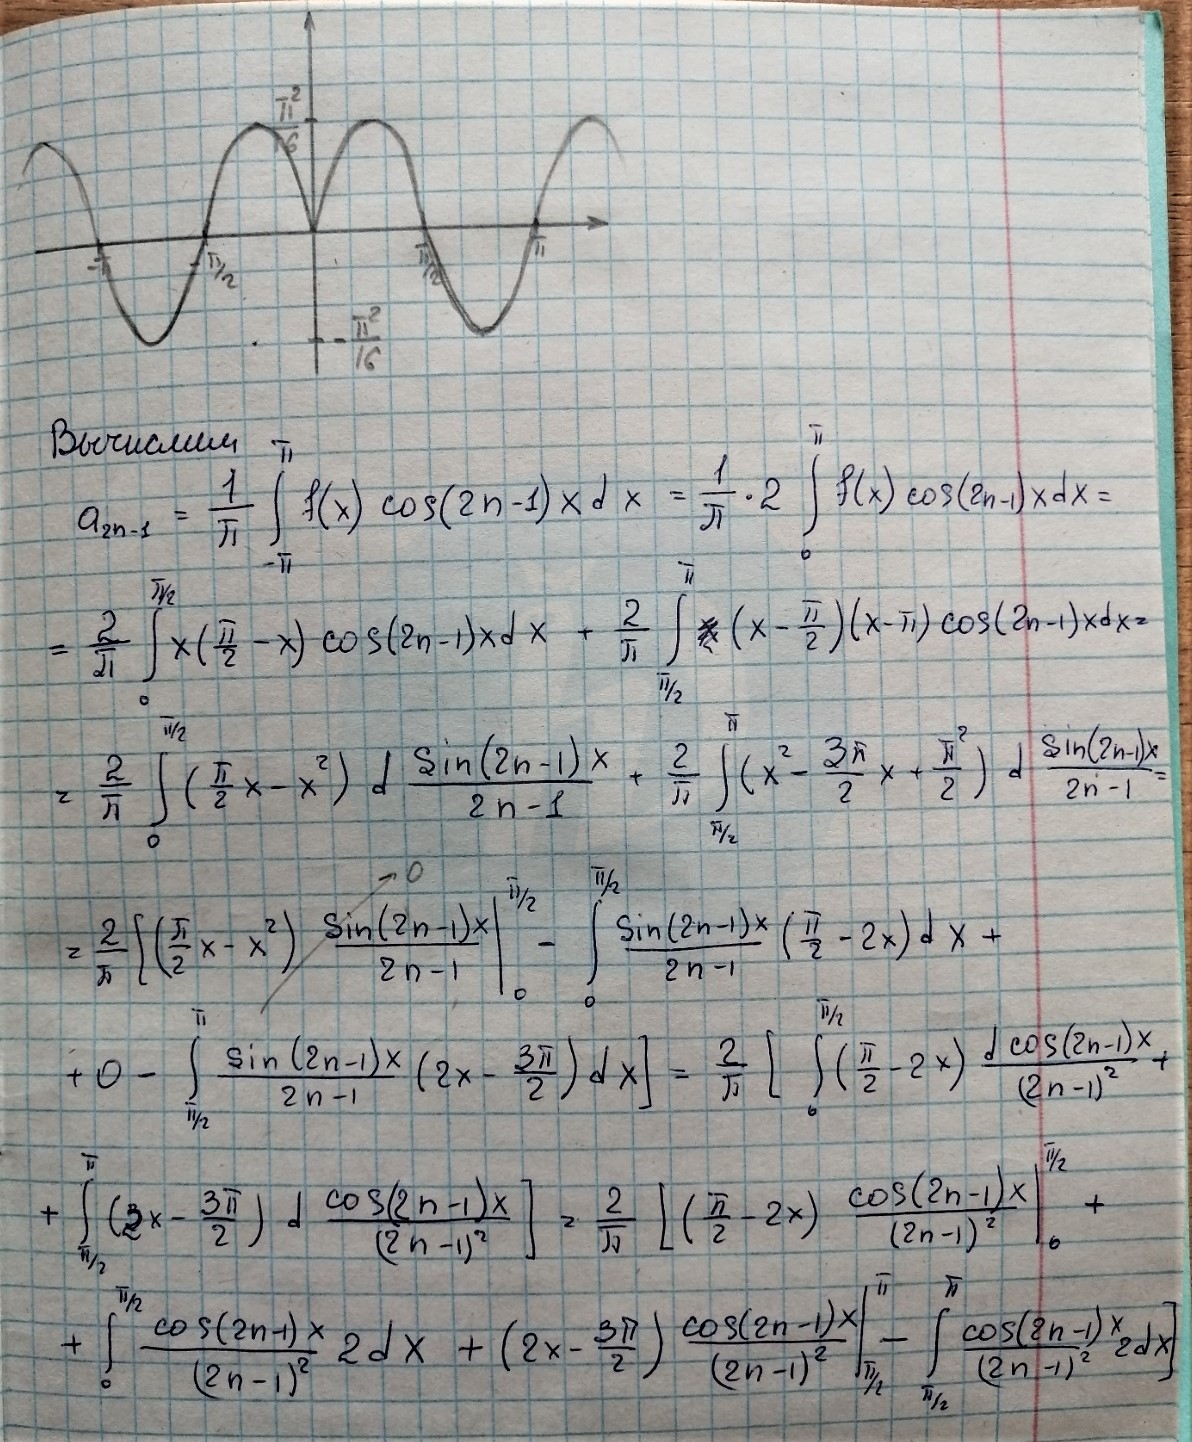 π²/16
-π
-π/2
π/2
π
-π²/16
Вычислим
a₂ₙ₋₁ = 1/π ∫_{-π}^{π} f(x) cos(2n-1)x dx = 1/π · 2 ∫_{0}^{π} f(x) cos(2n-1)x dx =
= 2/π ∫_{0}^{π/2} x(π/2 - x) cos(2n-1)x dx + 2/π ∫_{π/2}^{π} (x - π/2)(x-π) cos(2n-1)x dx =
= 2/π ∫_{0}^{π/2} (π/2 x - x²) d sin(2n-1)x/(2n-1) + 2/π ∫_{π/2}^{π} (x² - 3π/2 x + π²/2) d sin(2n-1)x/(2n-1) =
= 2/π [(π/2 x - x²) sin(2n-1)x/(2n-1) |_{0}^{π/2} → 0 - ∫_{0}^{π/2} sin(2n-1)x/(2n-1) (π/2 - 2x) dx +
+ 0 - ∫_{π/2}^{π} sin(2n-1)x/(2n-1) (2x - 3π/2) dx] = 2/π [ ∫_{0}^{π/2} (π/2 - 2x) d cos(2n-1)x/(2n-1)² +
+ ∫_{π/2}^{π} (2x - 3π/2) d cos(2n-1)x/(2n-1)² ] = 2/π [(π/2 - 2x) cos(2n-1)x/(2n-1)² |_{0}^{π/2} +
+ ∫_{0}^{π/2} cos(2n-1)x/(2n-1)² 2dx + (2x - 3π/2) cos(2n-1)x/(2n-1)² |_{π/2}^{π} - ∫_{π/2}^{π} cos(2n-1)x/(2n-1)² 2dx]